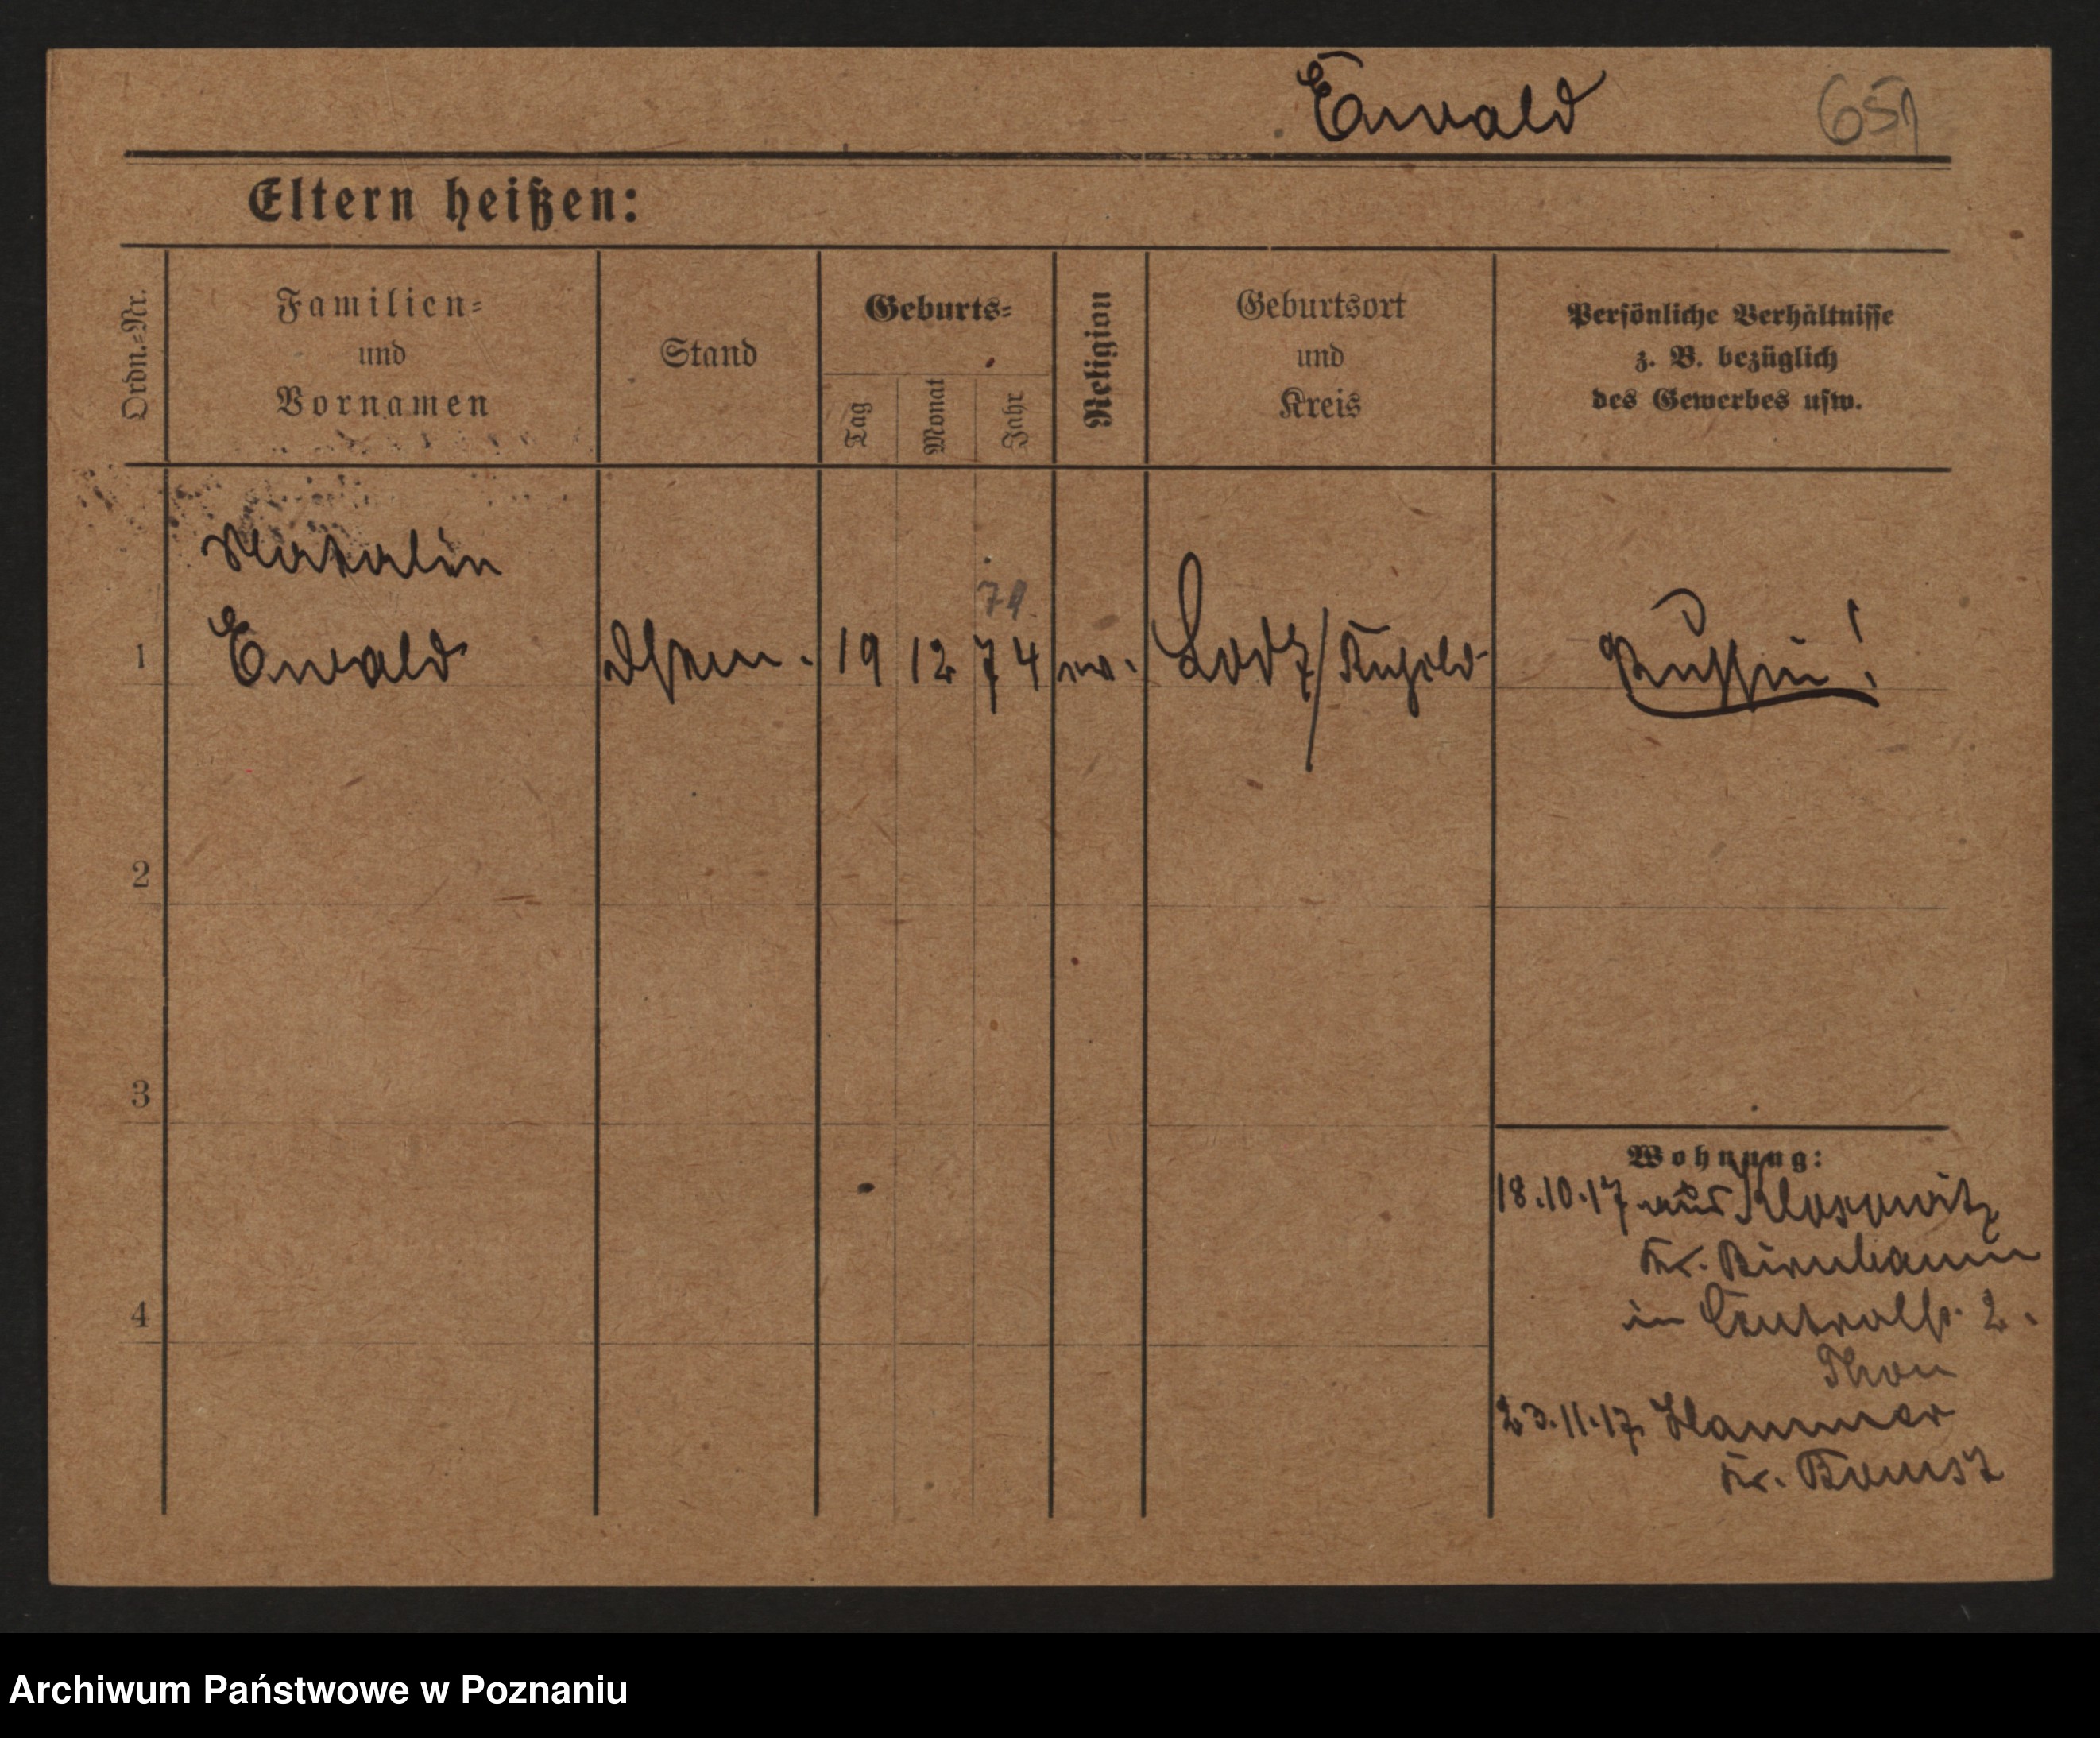 Ewald 651
Eltern heißen:
Ordn.-Nr.
Familien-
und
Vornamen
Stand
Geburts-
Tag
Monat
Jahr
Religion
Geburtsort
und
Kreis
Persönliche Verhältnisse
z. B. bezüglich
des Gewerbes usw.
Natalin
71.
1 Ewald 19 12 74 ev. Lodz/ Russin!
2
3
4
Wohnung:
18.10.17 aus
Kr. Birnbaum
in Centralh. 2.
Thon
23.11.17. Hammer
Kr. Bomst
Archiwum Państwowe w Poznaniu